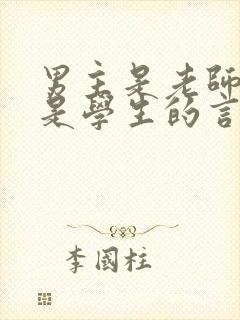 男主是老師
是學生的言
李國柱